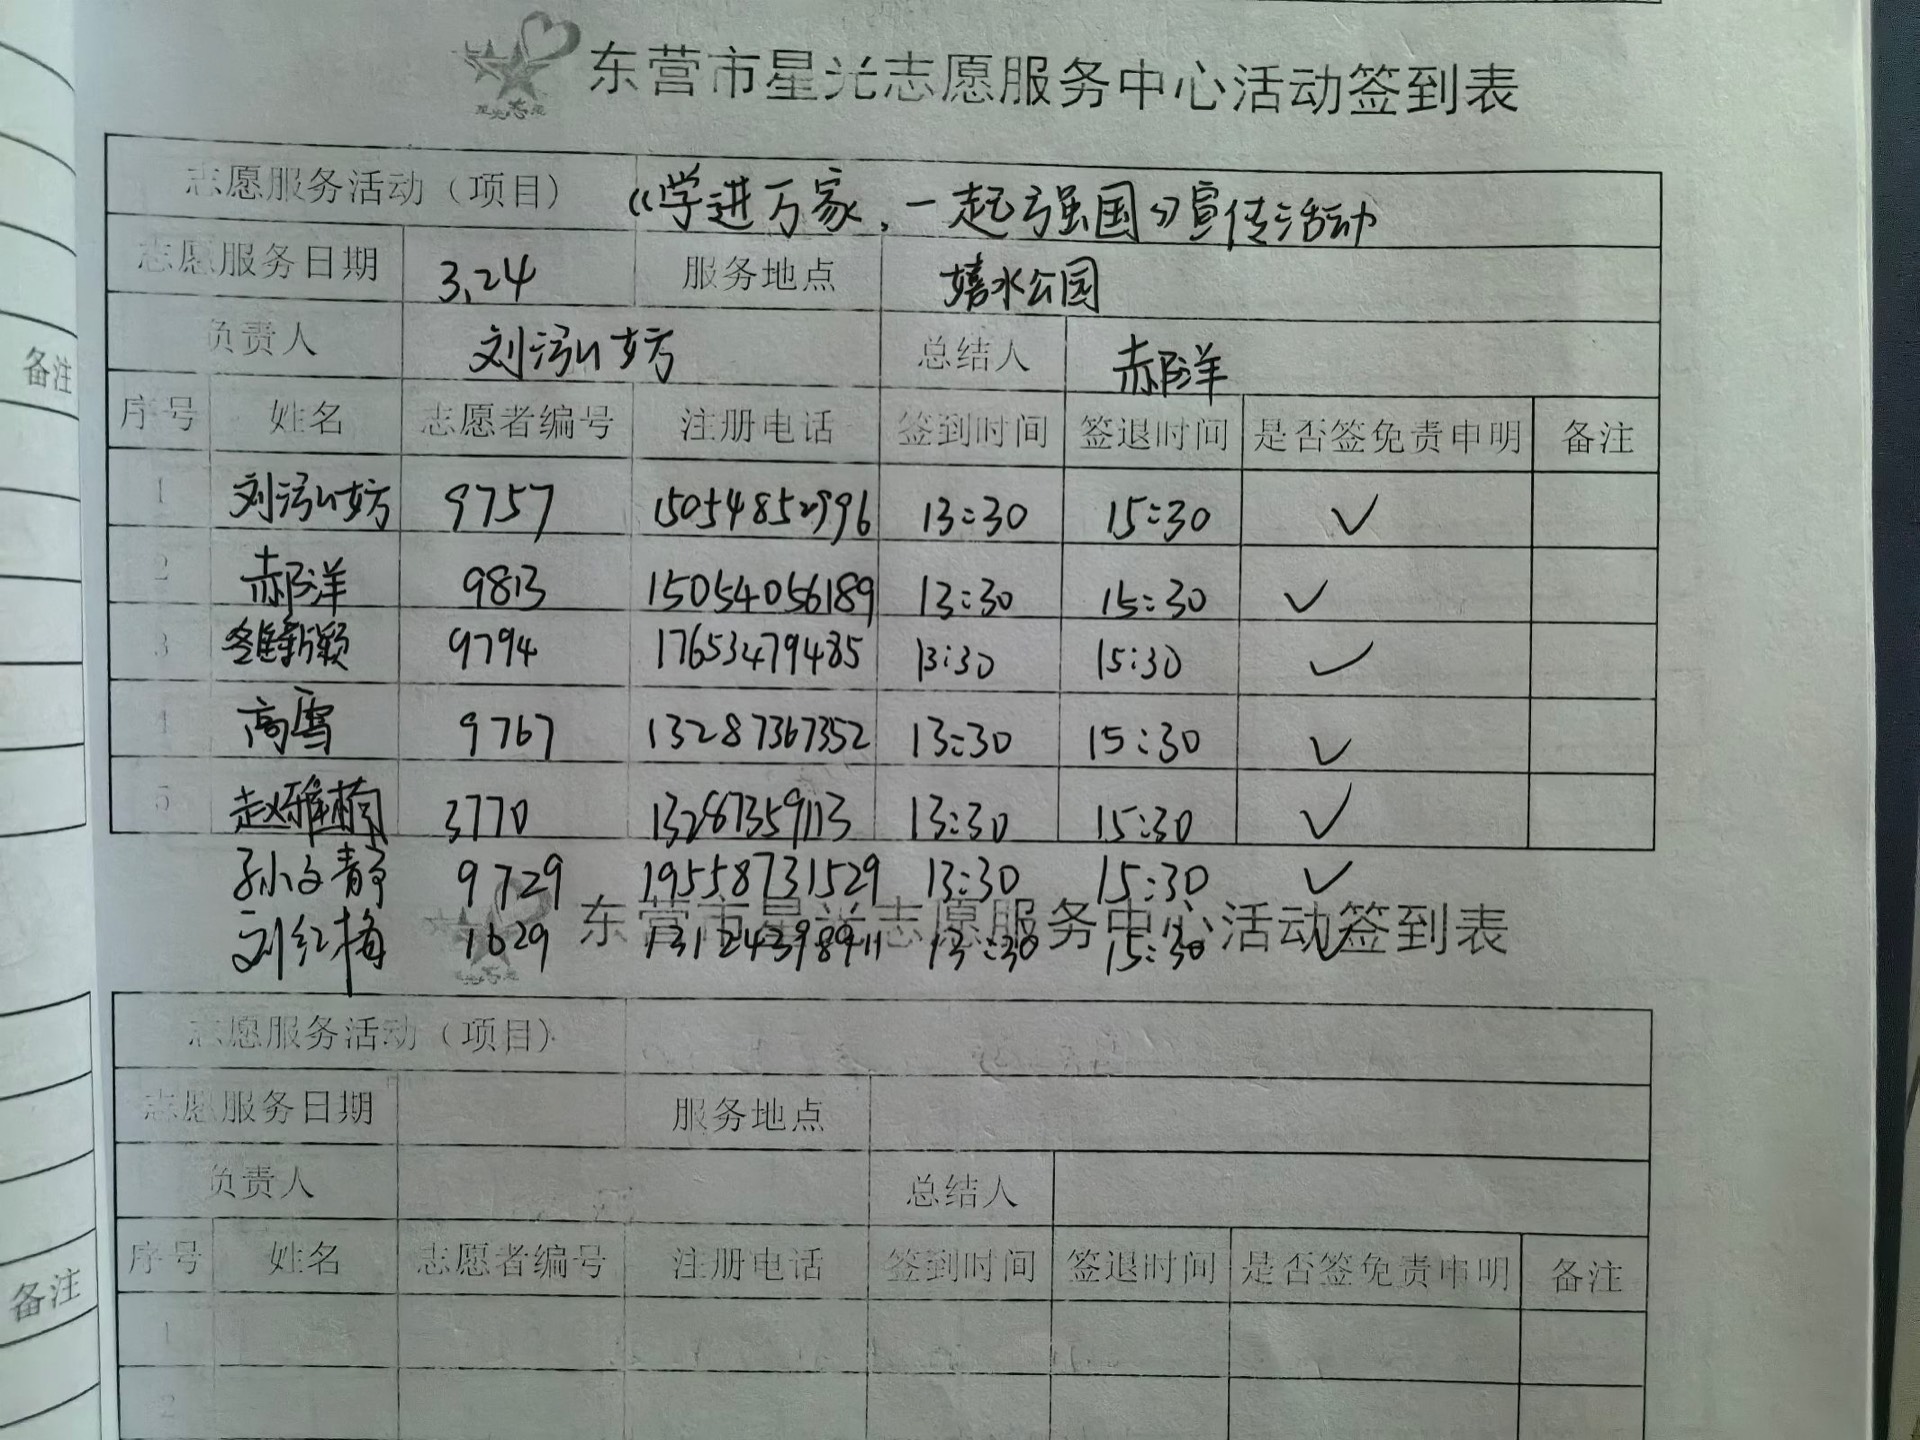 东营市星光志愿服务中心活动签到表
志愿服务活动（项目） 《学进万家，一起强国》宣传活动
志愿服务日期 3.24 服务地点 嬉水公园
负责人 刘泓妨 总结人 郝洋
序号 姓名 志愿者编号 注册电话 签到时间 签退时间 是否签免责申明 备注
1 刘泓妨 9757 15054852996 13:30 15:30 ✓
2 郝洋 9813 15054056189 13:30 15:30 ✓
3 9794 17653479485 13:30 15:30 ✓
4 高雪 9767 13287367352 13:30 15:30 ✓
5 赵雅楠 3770 13287359113 13:30 15:30 ✓
孙文静 9729 19558731529 13:30 15:30 ✓
刘红梅 1629 13:30 15:30 ✓
东营市星光志愿服务中心活动签到表
志愿服务活动（项目）
志愿服务日期 服务地点
负责人 总结人
序号 姓名 志愿者编号 注册电话 签到时间 签退时间 是否签免责申明 备注
1
2
备注
备注